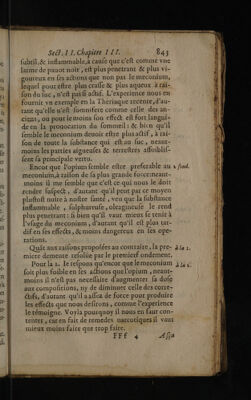 Sect. II. Chapitre III. 843
subtil, & inflammable, à cause que c'est comme vne
larme de pauot noir, est plus penetrant & plus vi-
goureux en ses actions que non pas le meconium,
lequel pour estre plus crasse & plus aqueux à rai-
son du suc, n'est pas si actif. L'experience nous en
fournit vn exemple en la Theriaque recente, d'au-
tant qu'elle n'est somnifere comme celle des an-
ciens, ou pour le moins son effect est fort langui-
de en la prouocation du sommeil: & bien qu'il
semble le meconium deuoir estre plus actif, à rai-
son de toute la substance qui est au suc, neant-
moins les parties aigueuses & terrestres affoiblis-
sent sa principale vertu.
Encor que l'opium semble estre preferable au
meconium, à raison de sa plus grande force: neant-
moins il me semble que c'est ce qui nous le doit
rendre suspect, d'autant qu'il peut par ce moyen
plustost nuire à nostre santé, veu que sa substance
inflammable, sulphureuse, oleagineuse le rend
plus penetrant: si bien qu'il vaut mieux se tenir à
l'vsage du meconium, d'autant qu'il est plus tar-
dif en ses effects, & moins dangereux en ses ope-
rations.
Quât aux raisons proposées au contraire, la pre-
miere demeure resoluë par le premier fondement.
Pour la 2. ie respons qu'encor que le meconium
soit plus foible en ses actions que l'opium, neant-
moins il n'est pas necessaire d'augmenter sa dose
aux compositions, ny de diminuer celle des corre-
ctifs, d'autant qu'il a assez de force pour produire
les effects que nous desirons, comme l'experience
le témoigne. Voyla pourquoy il nous en faut con-
tenter, car en fait de remedes narcotiques il vaut
mieux moins faire que trop faire.
FFf 4